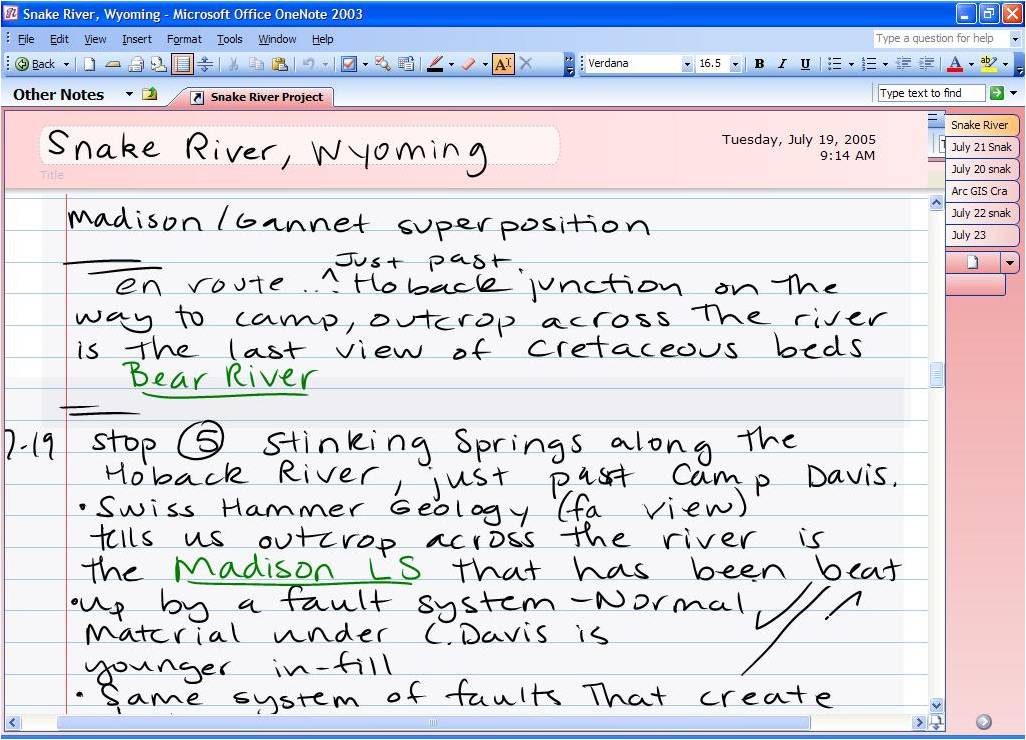 Snake River, Wyoming - Microsoft Office OneNote 2003
File Edit View Insert Format Tools Window Help
Type a question for help
Back
Verdana 16.5 B I U
Other Notes
Snake River Project
Type text to find
Snake River, Wyoming
Title
Tuesday, July 19, 2005
9:14 AM
Snake River
July 21 Snak
July 20 snak
Arc GIS Cra
July 22 snak
July 23
Madison / Gannet superposition
Just past
en route ..^ Hoback junction on the
way to camp, outcrop across the river
is the last view of Cretaceous beds
Bear River
7-19 stop 5 Stinking Springs along the
Hoback River, just past Camp Davis.
• Swiss Hammer Geology (fa view)
tells us outcrop across the river is
the Madison LS that has been beat
• up by a fault system - Normal
Material under C. Davis is
younger in-fill
• Same system of faults that create